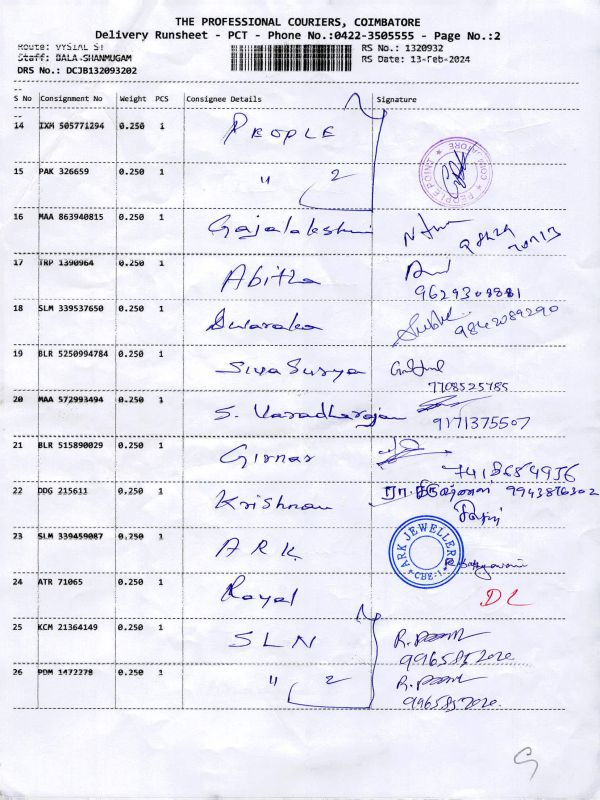 THE PROFESSIONAL COURIERS, COIMBATORE
Delivery Runsheet - PCT - Phone No.:0422-3505555 - Page No.:2
Route: VYSIAL ST
RS No.: 1320932
Staff: BALA-SHANMUGAM
RS Date: 13-Feb-2024
DRS No.: DCJB132093202
S No Consignment No Weight PCS Consignee Details Signature
14 IXM 505771294 0.250 1 PEOPLE
15 PAK 326659 0.250 1 " 2
PEOPLE POINT
16 MAA 863940815 0.250 1 Gajalakshmi
17 TRP 1390964 0.250 1 Abitha
9629308881
18 SLM 339537650 0.250 1 Dwaraka
9842089290
19 BLR 5250994784 0.250 1 Siva Surya
7708525785
20 MAA 572993494 0.250 1 S. Varadharajan
9171375507
21 BLR 515890029 0.250 1 Girnar
22 DDG 215611 0.250 1 Krishnan
9943876302
23 SLM 339459087 0.250 1 ARK
ARK JEWELLERY
CBE-1
24 ATR 71065 0.250 1 Royal
DL
25 KCM 21364149 0.250 1 SLN
9965852020
26 PDM 1472278 0.250 1 " 2
9965852020